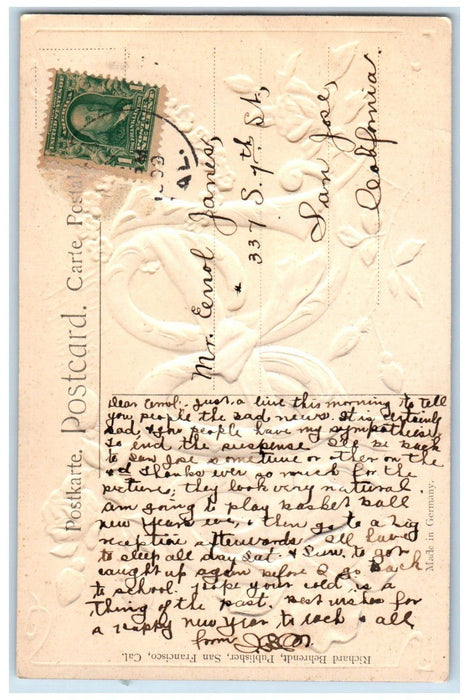 Postkarte. Postcard. Carte Postale
Mr. Errol Janes,
337 S. 7th St,
San Jose,
California.
Dear Errol:. Just a line this morning to tell
you people the sad news. It is certainly
sad & the people have my sympathies
To end the suspense I'll be back
to San Jose sometime or other on the
3d Thanks ever so much for the
picture, they look very natural.
am going to play basket ball
new years eve, & then go to a big
reception afterwards. I'll have
to sleep all day Sat. & Sun. to get
caught up again before I go back
to school. Hope your cold is a
thing of the past. Best wishes for
a Happy new year to each & all
from
Made in Germany.
Richard Behrendt, Publisher, San Francisco, Cal.
CAL.